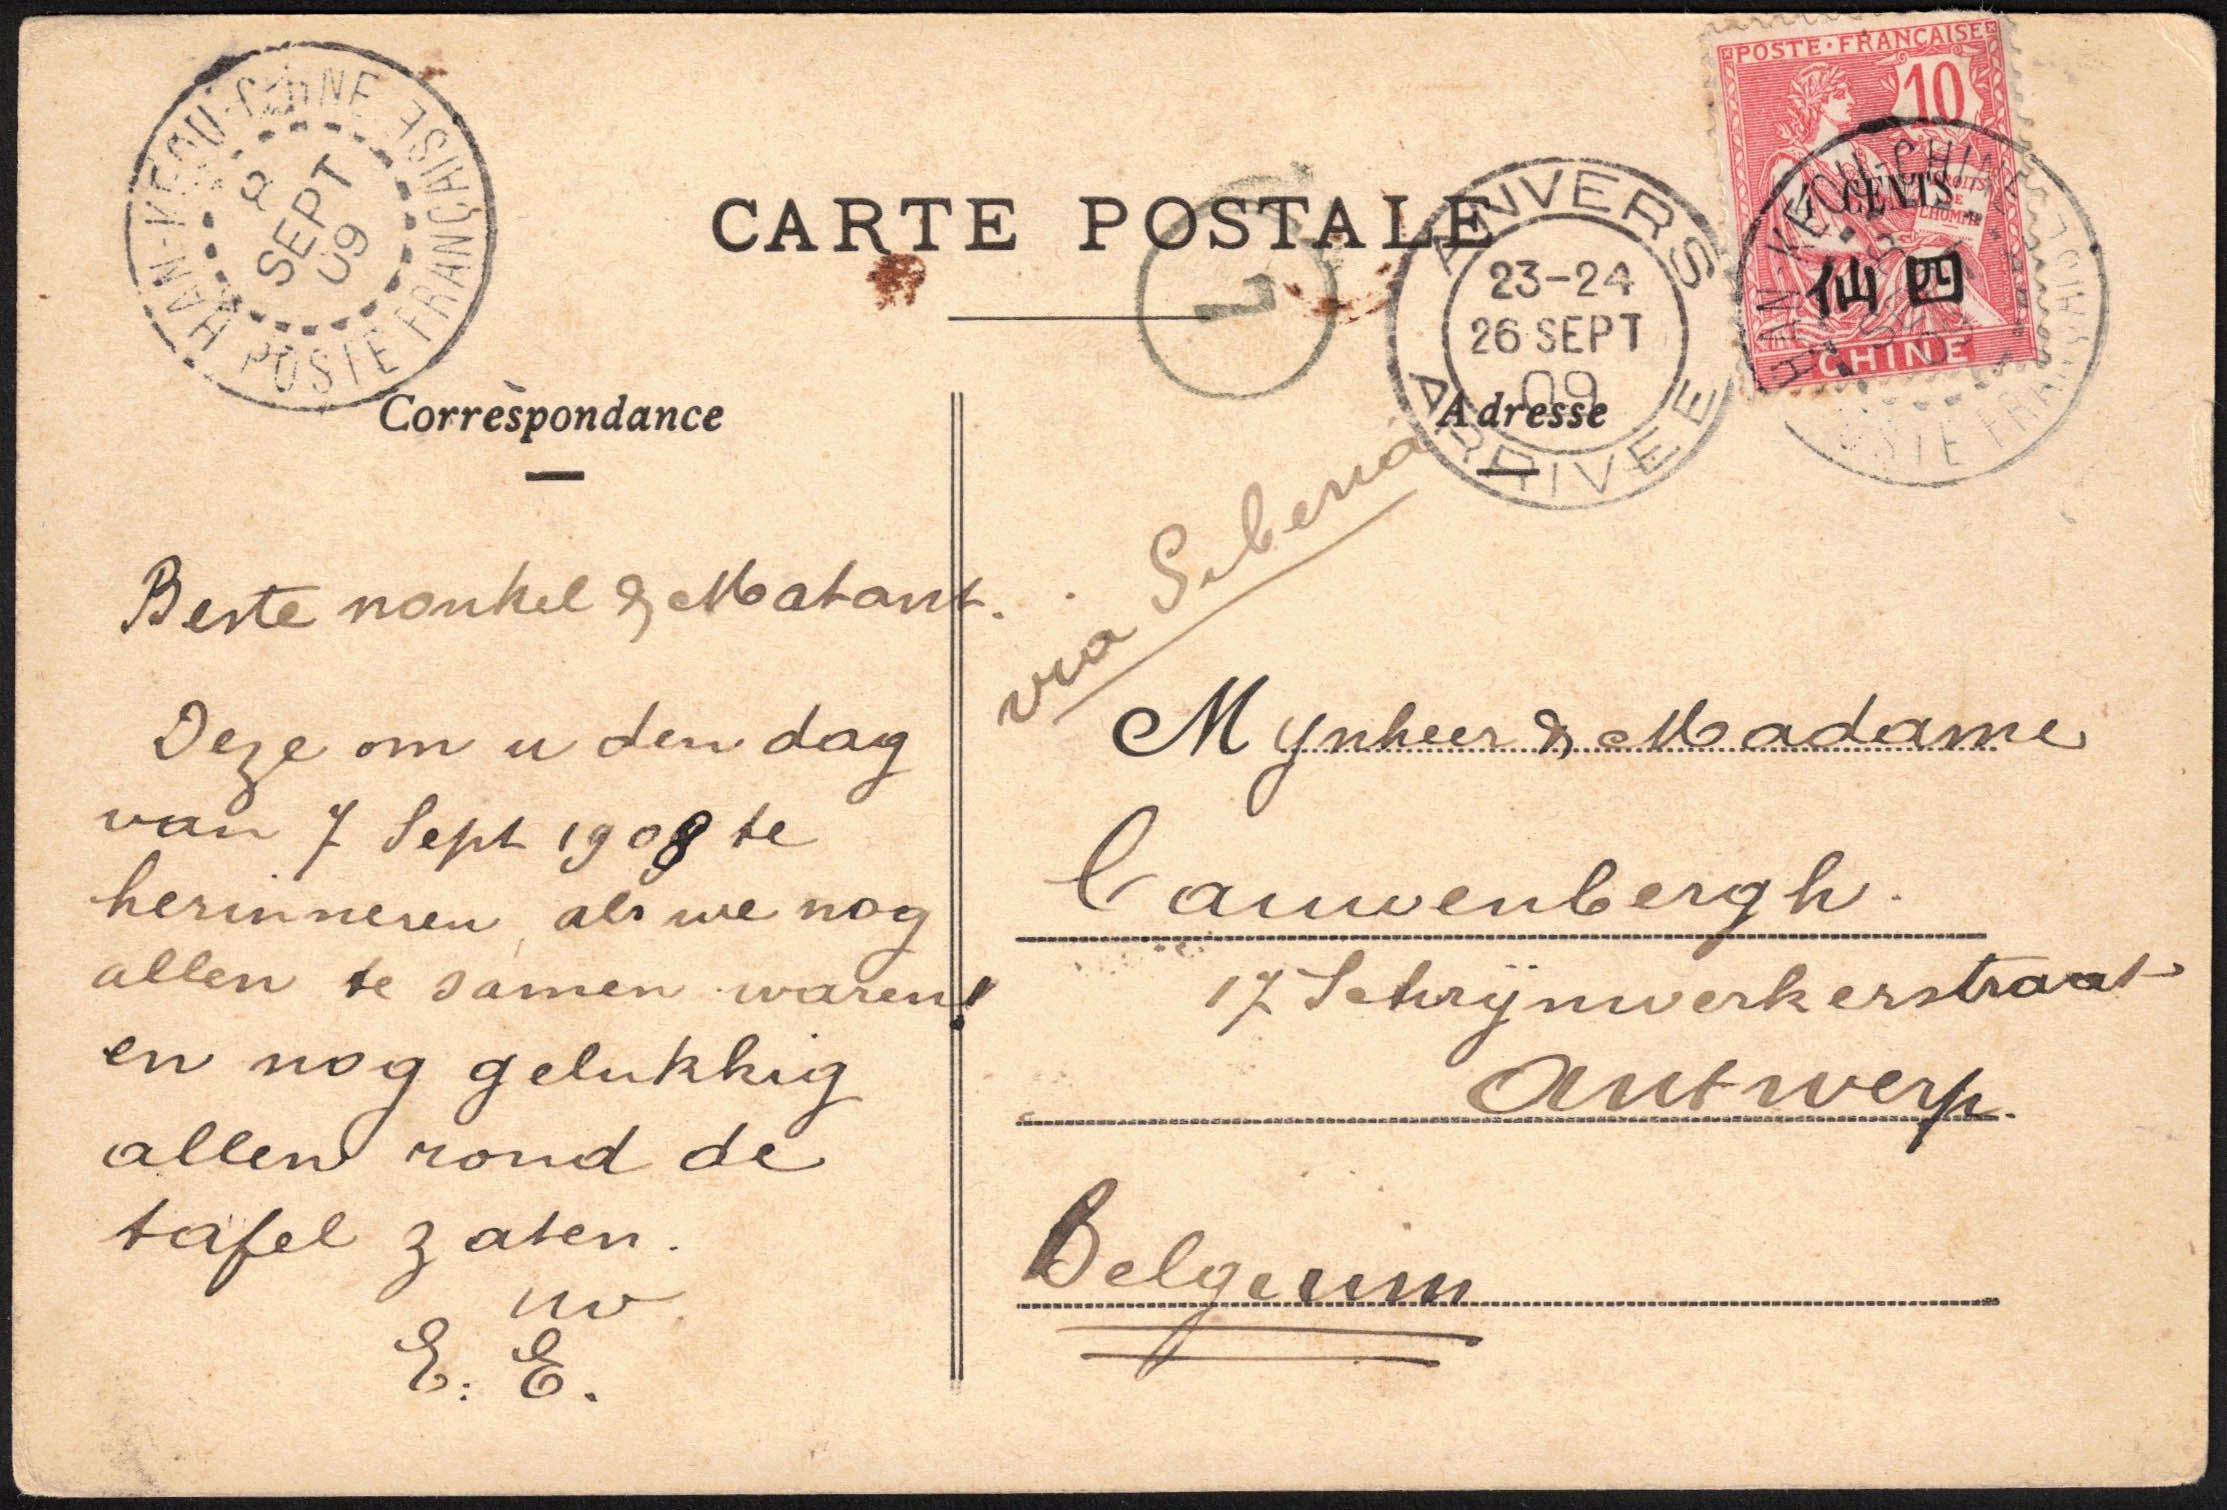 HAN-KEOU-CHINE
POSTE FRANÇAISE
SEPT
09
CARTE POSTALE
ANVERS
23-24
26 SEPT
09
ARRIVEE
POSTE · FRANÇAISE
10
DROITS
DE
L'HOMME
CENTS
仙四
CHINE
HAN-KEOU-CHINE
POSTE FRANÇAISE
Correspondance
Adresse
via Siberia
Beste nonkel & Matant.
Deze om u den dag
van 7 Sept 1908 te
herinneren, als we nog
allen te samen waren!
en nog gelukkig
allen rond de
tafel zaten.
uw
E. E.
Mynheer & Madame
Cauwenbergh.
17 Schrijnwerkerstraat
Antwerp.
Belgium